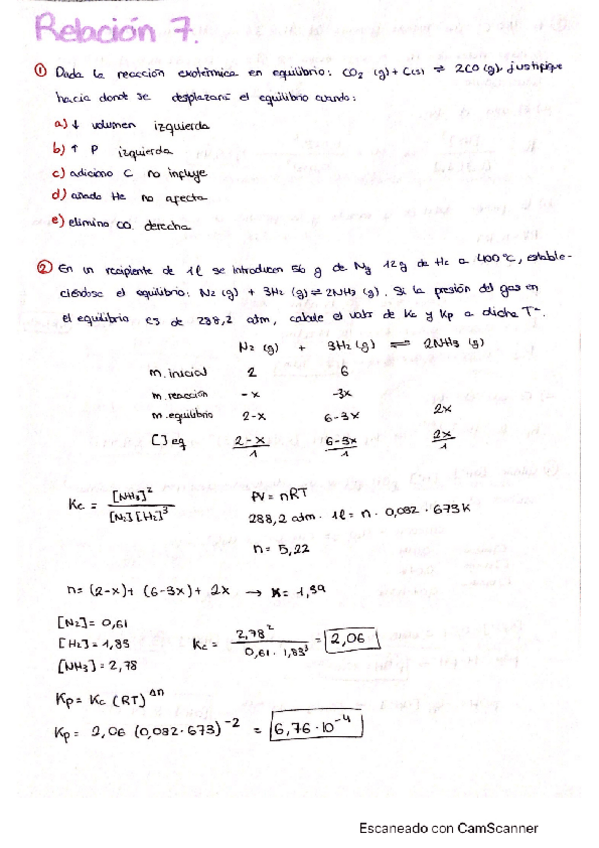 Relación 7.
① Dada la reacción exotérmica en equilibrio: CO2 (g) + C(s) ⇌ 2CO (g). justifique
hacia donde se desplazará el equilibrio cuando:
a) ↓ volumen izquierda
b) ↑ P izquierda
c) adiciono C no influye
d) añado He no afecta
e) elimino CO. derecha
② En un recipiente de 1l se introducen 56 g de N2 12g de H2 a 400°C, estable-
ciéndose el equilibrio: N2 (g) + 3H2 (g) ⇌ 2NH3 (g). Si la presión del gas en
el equilibrio es de 288,2 atm, calcule el valor de Kc y Kp a dicha Tª.
N2 (g) + 3H2 (g) ⇌ 2NH3 (g)
m. inicial 2 6
m. reacción -x -3x
m. equilibrio 2-x 6-3x 2x
[ ] eq 2-x/1 6-3x/1 2x/1
Kc = [NH3]²/[N2][H2]³
PV = nRT
288,2 atm · 1l = n · 0,082 · 673K
n = 5,22
n = (2-x) + (6-3x) + 2x → x = 1,39
[N2] = 0,61
[H2] = 1,83
[NH3] = 2,78
Kc = 2,78²/0,61 · 1,83³ = 2,06
Kp = Kc (RT)^Δn
Kp = 2,06 (0,082·673)⁻² = 6,76·10⁻⁴
Escaneado con CamScanner